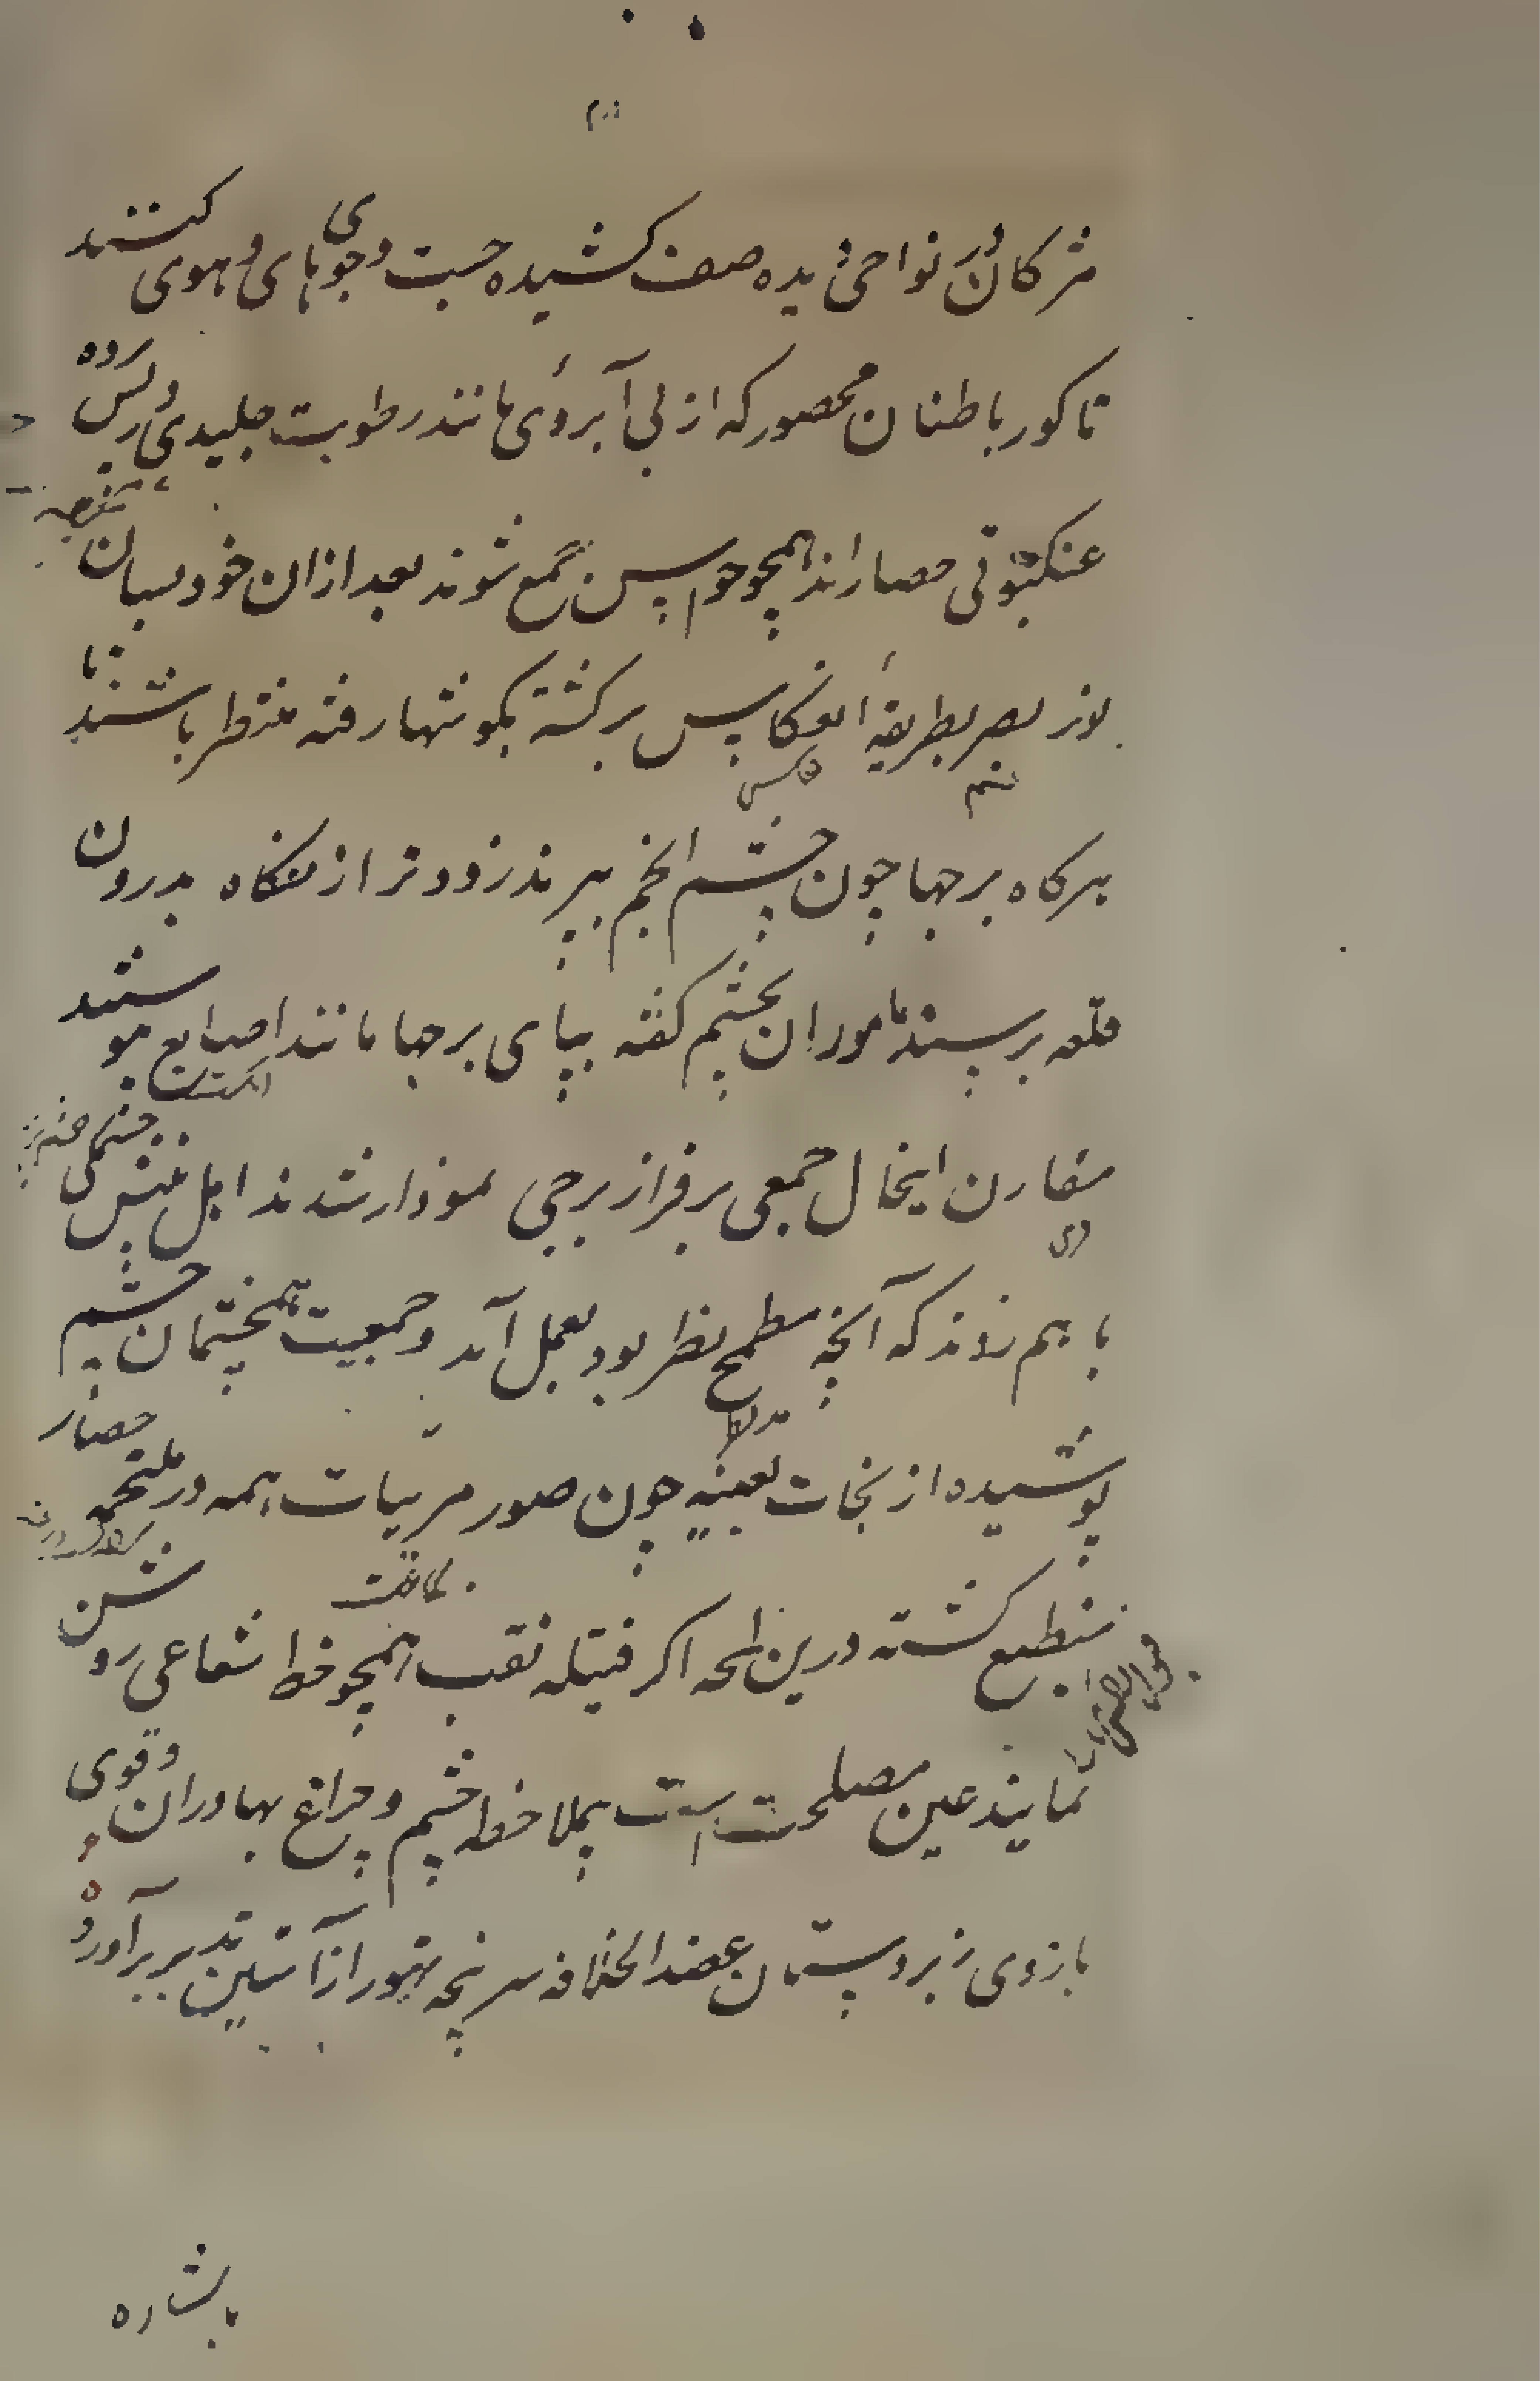 مژکان در نواحی دیده صف کشیده جست وجوی های و هوی کنند
تا کور باطنان محصور که از بی آبروئی مانند رطوبت جلیدی در پس پرده
عنکبوتی حصاراند همچو حواس جمع شوند بعد ازان خود بسان
نور بصر بطریقهٔ انعکاس برکشته بکونتها رفته منتظر باشند تا
هرکاه برجها چون چشم انجم بپرند زودتر از نکاه بدرون
قلعه برسند ماموران بچشم کفته بپای برجها مانند اصابع پیوستند
انکشت
مقارن اینحال جمعی بر فراز برجی نمودار شدند اهل بینش چشمکی
با هم زدند که آنچه مطمح نظر بود بعمل آمد و جمعیت همچشمان چشم
پوشیده از نجات بعینه چون صور مرئیات همه در ملتحمه حصار
منطبع کشته درین لمحه اکر فتیله نقب همچو خط شعاعی روشن
نمایند عین مصلحت است بملاحظه چشم و چراغ بهادران و قوی
بازوی زبردستان عضد الخلافه سرپنجه تهور از آستین تدبیر برآورده
باشاره